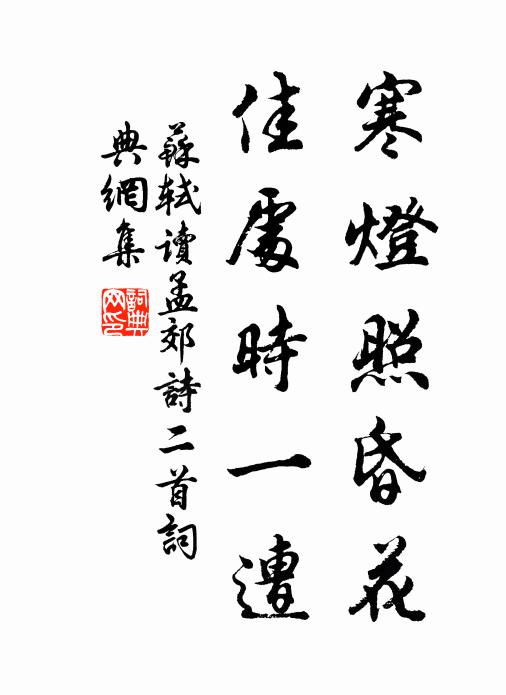 寒燈照昏花
佳處時一遭
蘇軾读孟郊詩二首詞
典網集
詞典網印